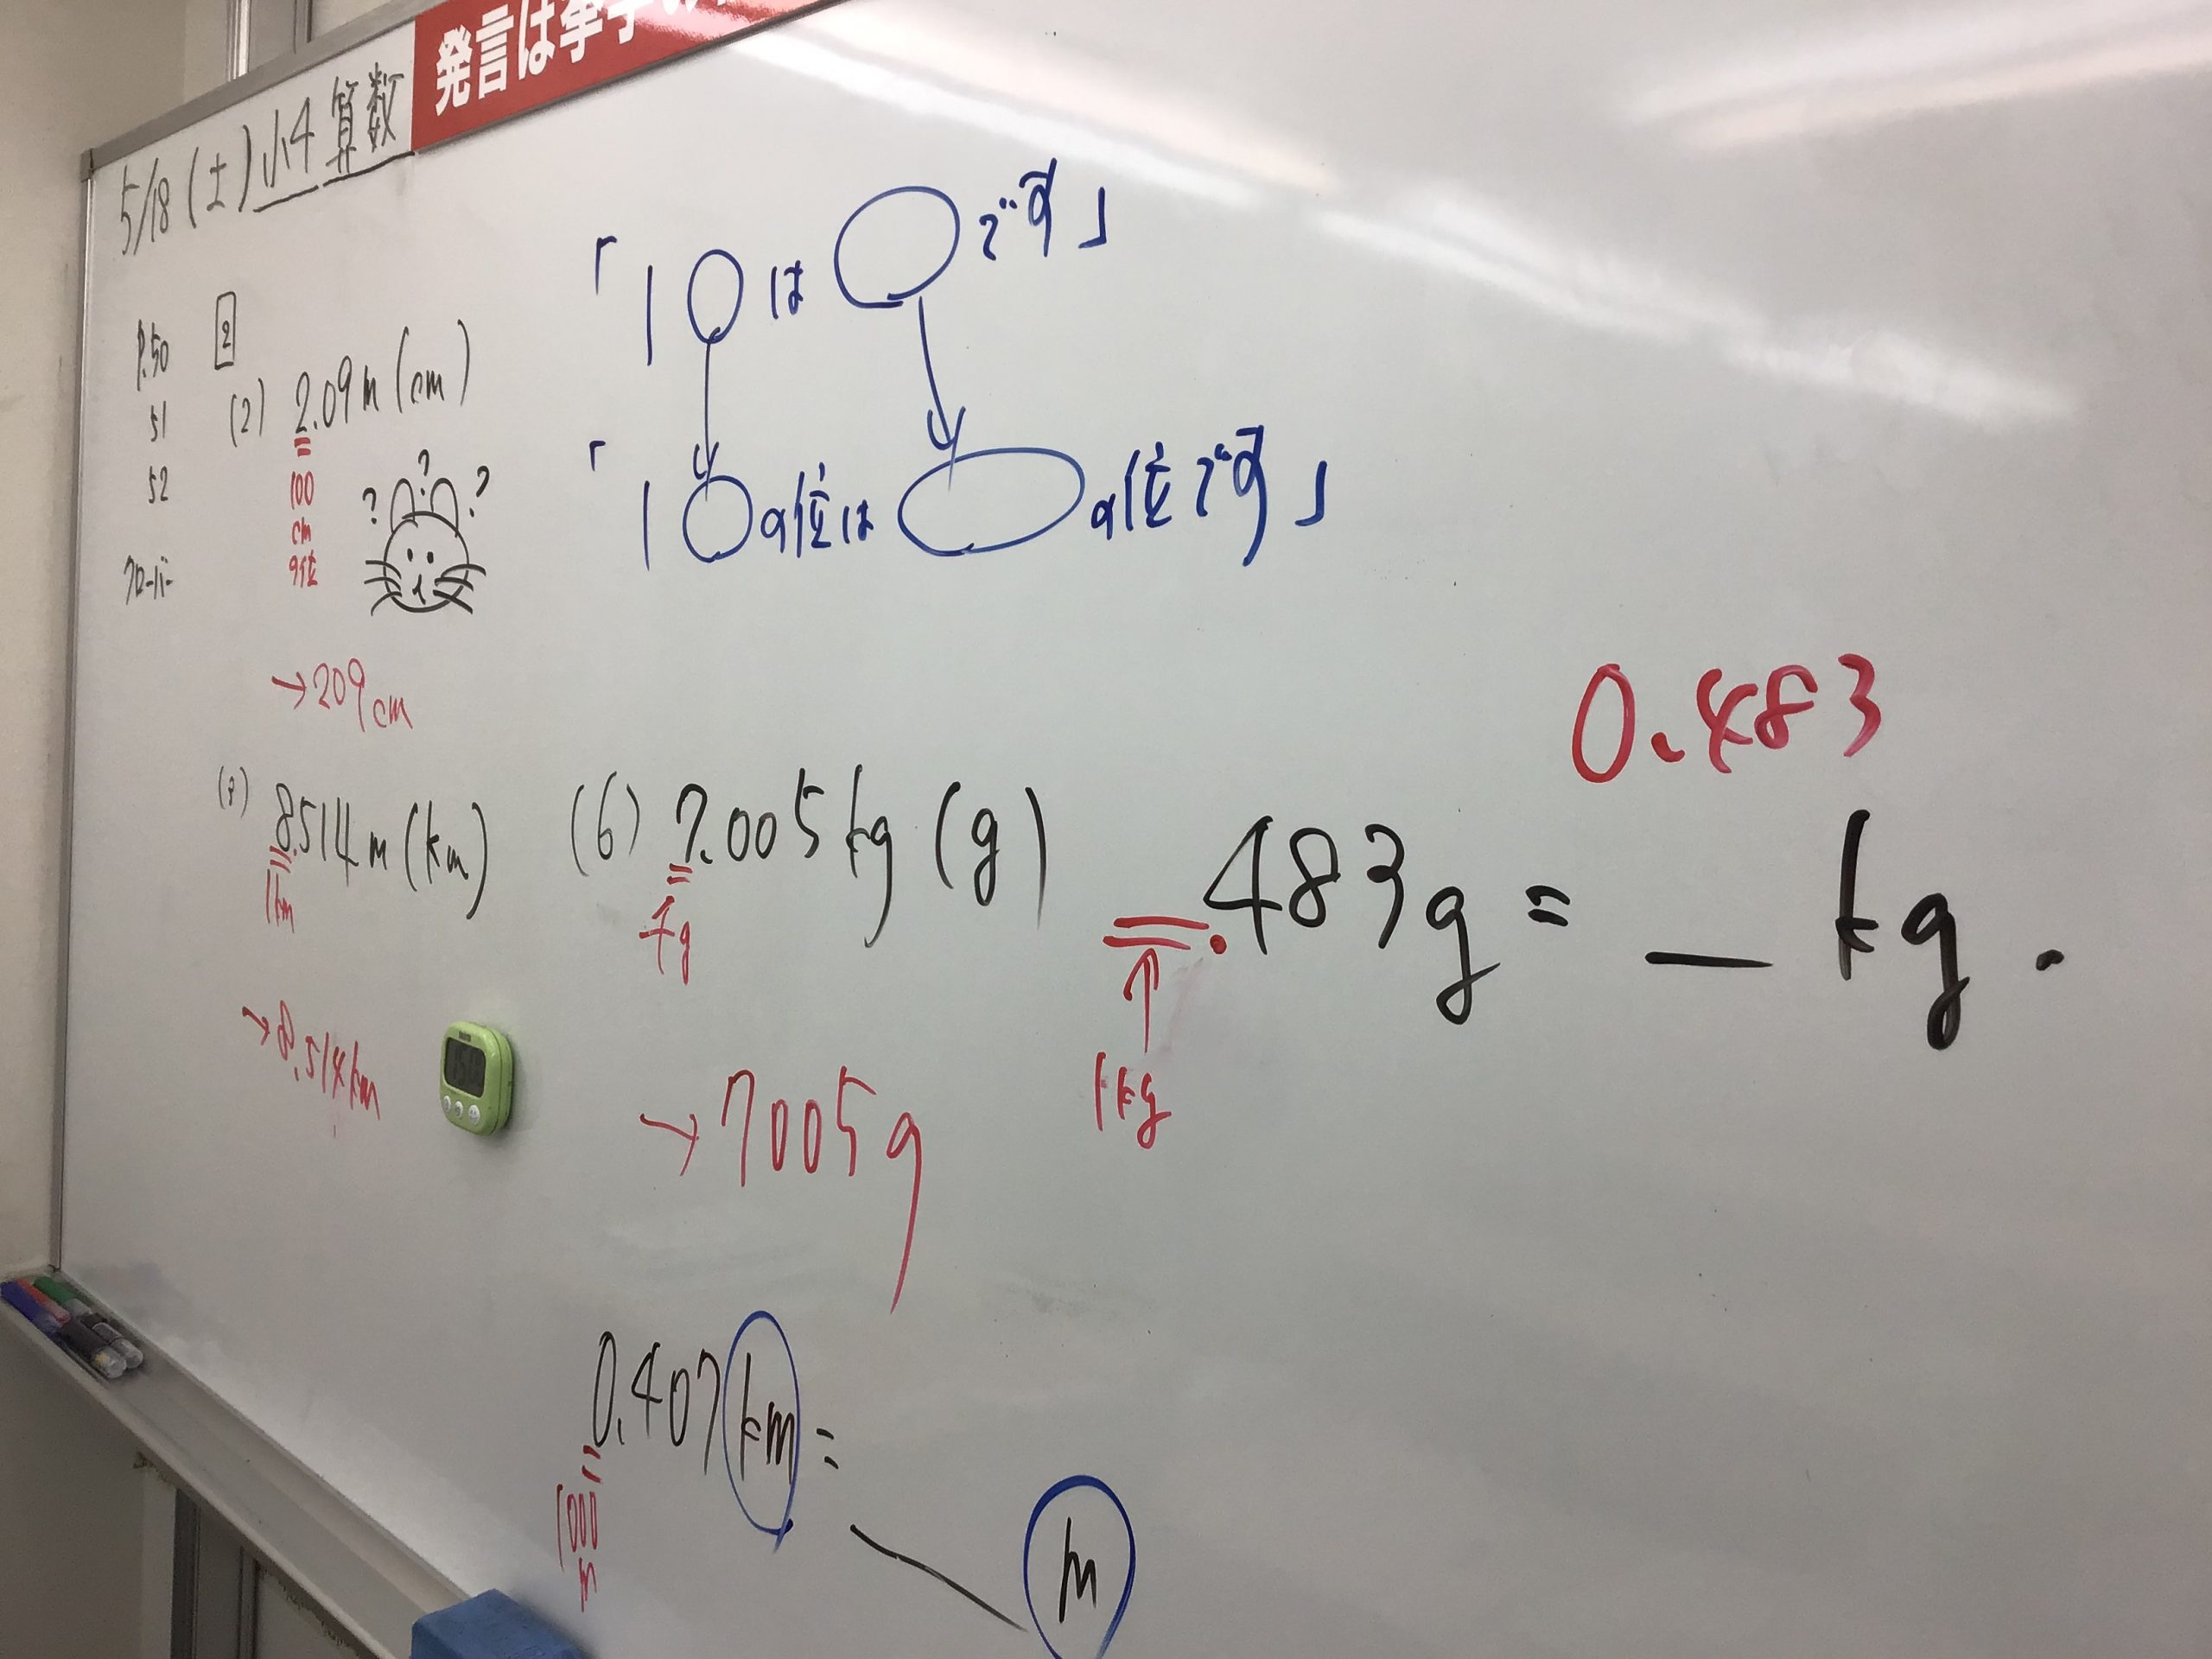 発言は挙手の
5/18(土)小4算数
P.50
51
52
クローバー
2
(2) 2.09m(cm)
100
cm
の位
? ? ?
→209cm
「1○は○です」
「1○の位は○の位です」
8514m(km)
1km
→8.514km
(6) 7.005kg(g)
千g
→7005g
0.483
.483g=_kg.
1kg
0.407km=
1000
m
m